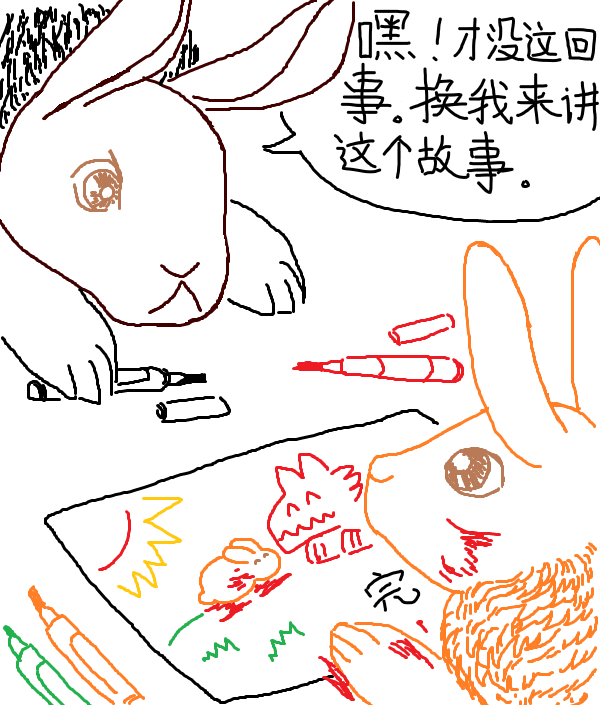 嘿！才没这回
事。换我来讲
这个故事。
完